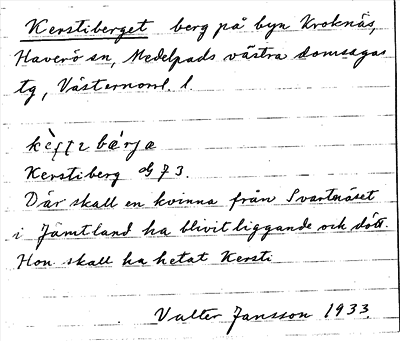 Kerstiberget berg på byn Kroknäs,
Haverö sn, Medelpads västra domsagas
tg, Västernorrl. l.
Kerstiberg 73.
Där skall en kvinna från Svartnäset
i Jämtland ha blivit liggande och dött.
Hon skall ha hetat Kersti
Valter Jansson 1933.